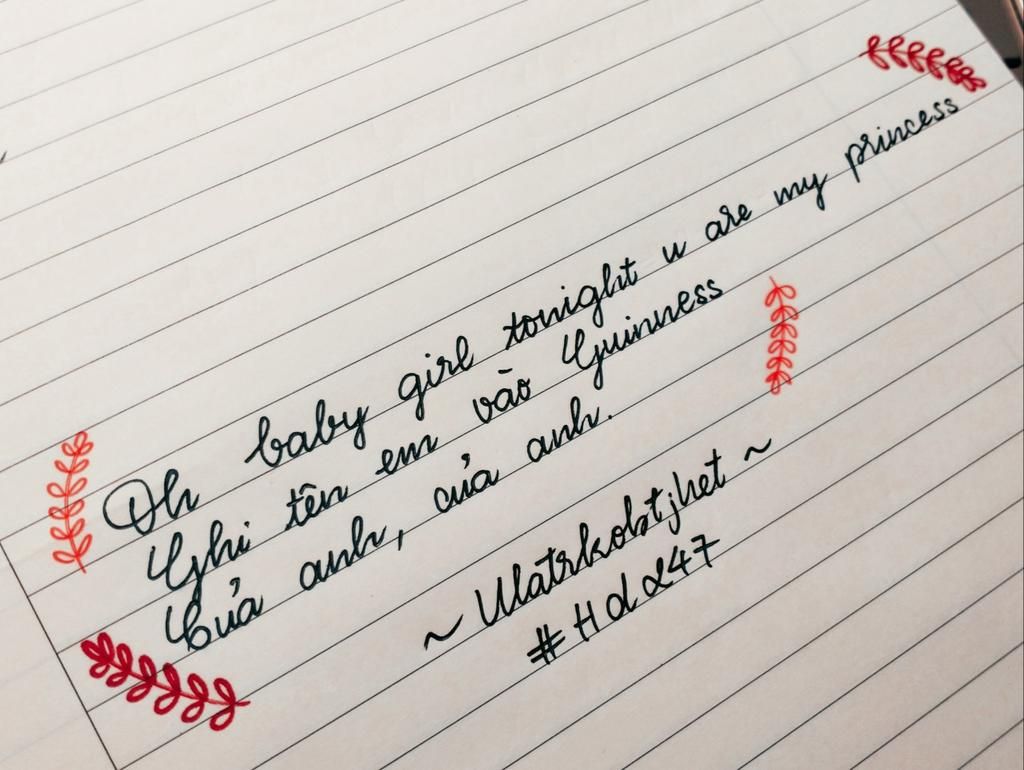 Oh baby girl tonight u are my princess
Ghi tên em vào Guinness
Của anh, của anh.
~ Watrkobtjhet ~
#Hdd47